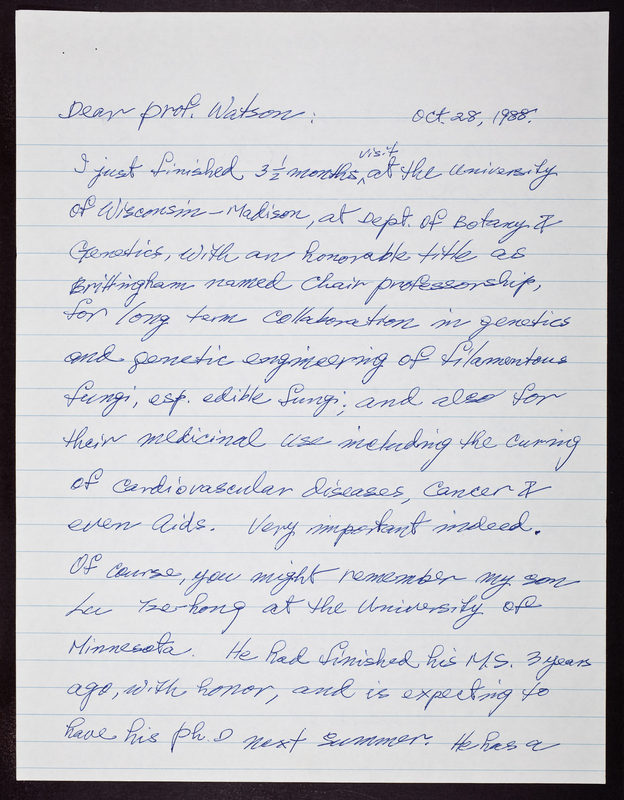 Dear Prof. Watson: Oct. 28, 1988.
visit
I just finished 3 1/2 months at the University
of Wisconsin-Madison, at Dept. of Botany &
Genetics, with an honorable title as
Brittingham named Chair professorship,
for long term collaboration in genetics
and genetic engineering of filamentous
fungi, esp. edible fungi; and also for
their medicinal use including the curing
of cardiovascular diseases, Cancer &
even Aids. Very important indeed.
Of course, you might remember my son
Lu Tze-hong at the University of
Minnesota. He had finished his M.S. 3 years
ago, with honor, and is expecting to
have his Ph.D next summer. He has a